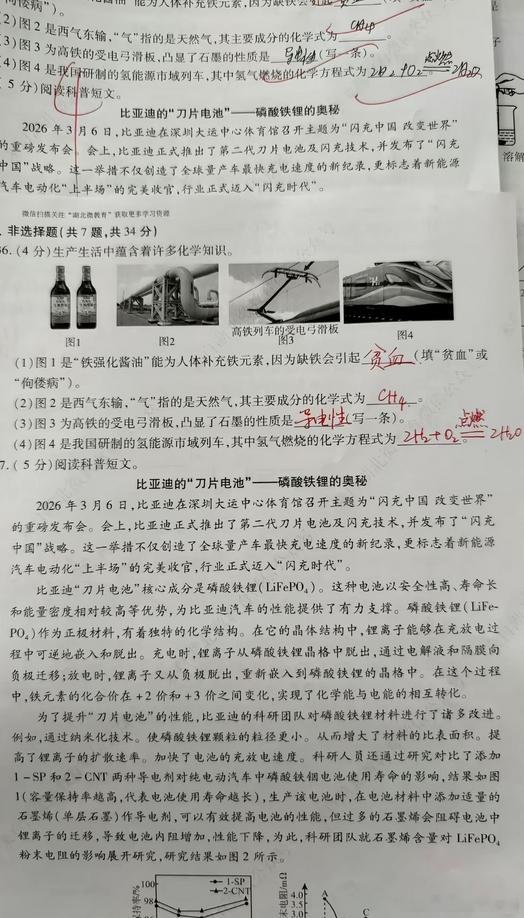 “佝偻病”)。
(2)图2是西气东输,“气”指的是天然气,其主要成分的化学式为 CH₄ 。
(3)图3为高铁的受电弓滑板,凸显了石墨的性质是 导电性 (写一条)。
(4)图4是我国研制的氢能源市域列车,其中氢气燃烧的化学方程式为 2H₂+O₂ 点燃 2H₂O
5分)阅读科普短文。
比亚迪的“刀片电池”——磷酸铁锂的奥秘
2026年3月6日,比亚迪在深圳大运中心体育馆召开主题为“闪充中国 改变世界”
的重磅发布会。会上,比亚迪正式推出了第二代刀片电池及闪充技术,并发布了“闪充
中国”战略。这一举措不仅创造了全球量产车最快充电速度的新纪录,更标志着新能源
汽车电动化“上半场”的完美收官,行业正式迈入“闪充时代”。
微信扫描关注“湖北微教育”获取更多学习资源
非选择题(共7题,共34分)
6.(4分)生产生活中蕴含着许多化学知识。
图1
图2
高铁列车的受电弓滑板
图3
图4
(1)图1是“铁强化酱油”能为人体补充铁元素,因为缺铁会引起 贫血 (填“贫血”或
“佝偻病”)。
(2)图2是西气东输,“气”指的是天然气,其主要成分的化学式为 CH₄ 。
(3)图3为高铁的受电弓滑板,凸显了石墨的性质是 导电性 (写一条)。
(4)图4是我国研制的氢能源市域列车,其中氢气燃烧的化学方程式为 2H₂+O₂ 点燃 2H₂O
7.(5分)阅读科普短文。
比亚迪的“刀片电池”——磷酸铁锂的奥秘
2026年3月6日,比亚迪在深圳大运中心体育馆召开主题为“闪充中国 改变世界”
的重磅发布会。会上,比亚迪正式推出了第二代刀片电池及闪充技术,并发布了“闪充
中国”战略。这一举措不仅创造了全球量产车最快充电速度的新纪录,更标志着新能源
汽车电动化“上半场”的完美收官,行业正式迈入“闪充时代”。
比亚迪“刀片电池”核心成分是磷酸铁锂(LiFePO₄)。这种电池以安全性高、寿命长
和能量密度相对较高等优势,为比亚迪汽车的性能提供了有力支撑。磷酸铁锂(LiFe-
PO₄)作为正极材料,有着独特的化学结构。在它的晶体结构中,锂离子能够在充放电过
程中可逆地嵌入和脱出。充电时,锂离子从磷酸铁锂晶格中脱出,通过电解液和隔膜向
负极迁移;放电时,锂离子又从负极脱出,重新嵌入到磷酸铁锂的晶格中。在这个过程
中,铁元素的化合价在+2价和+3价之间变化,实现了化学能与电能的相互转化。
为了提升“刀片电池”的性能,比亚迪的科研团队对磷酸铁锂材料进行了诸多改进。
例如,通过纳米化技术。使磷酸铁锂颗粒的粒径更小。从而增大了材料的比表面积。提
高了锂离子的扩散速率。加快了电池的充放电速度。科研人员还通过研究对比了添加
1-SP和2-CNT两种导电剂对纯电动汽车中磷酸铁锢电池使用寿命的影响,结果如图
1(容量保持率越高,代表电池使用寿命越长),生产该电池时,在电池材料中添加适量的
石墨烯(单层石墨)作导电剂,可以有效提高电池的性能,但过多的石墨烯会阻碍电池中
锂离子的迁移,导致电池内阻增加,性能下降,为此,科研团队就石墨烯含量对LiFePO₄
粉末电阻的影响展开研究,研究结果如图2所示。
100
98
1-SP
2-CNT
4.0
3.5
3.0
A
C
溶解